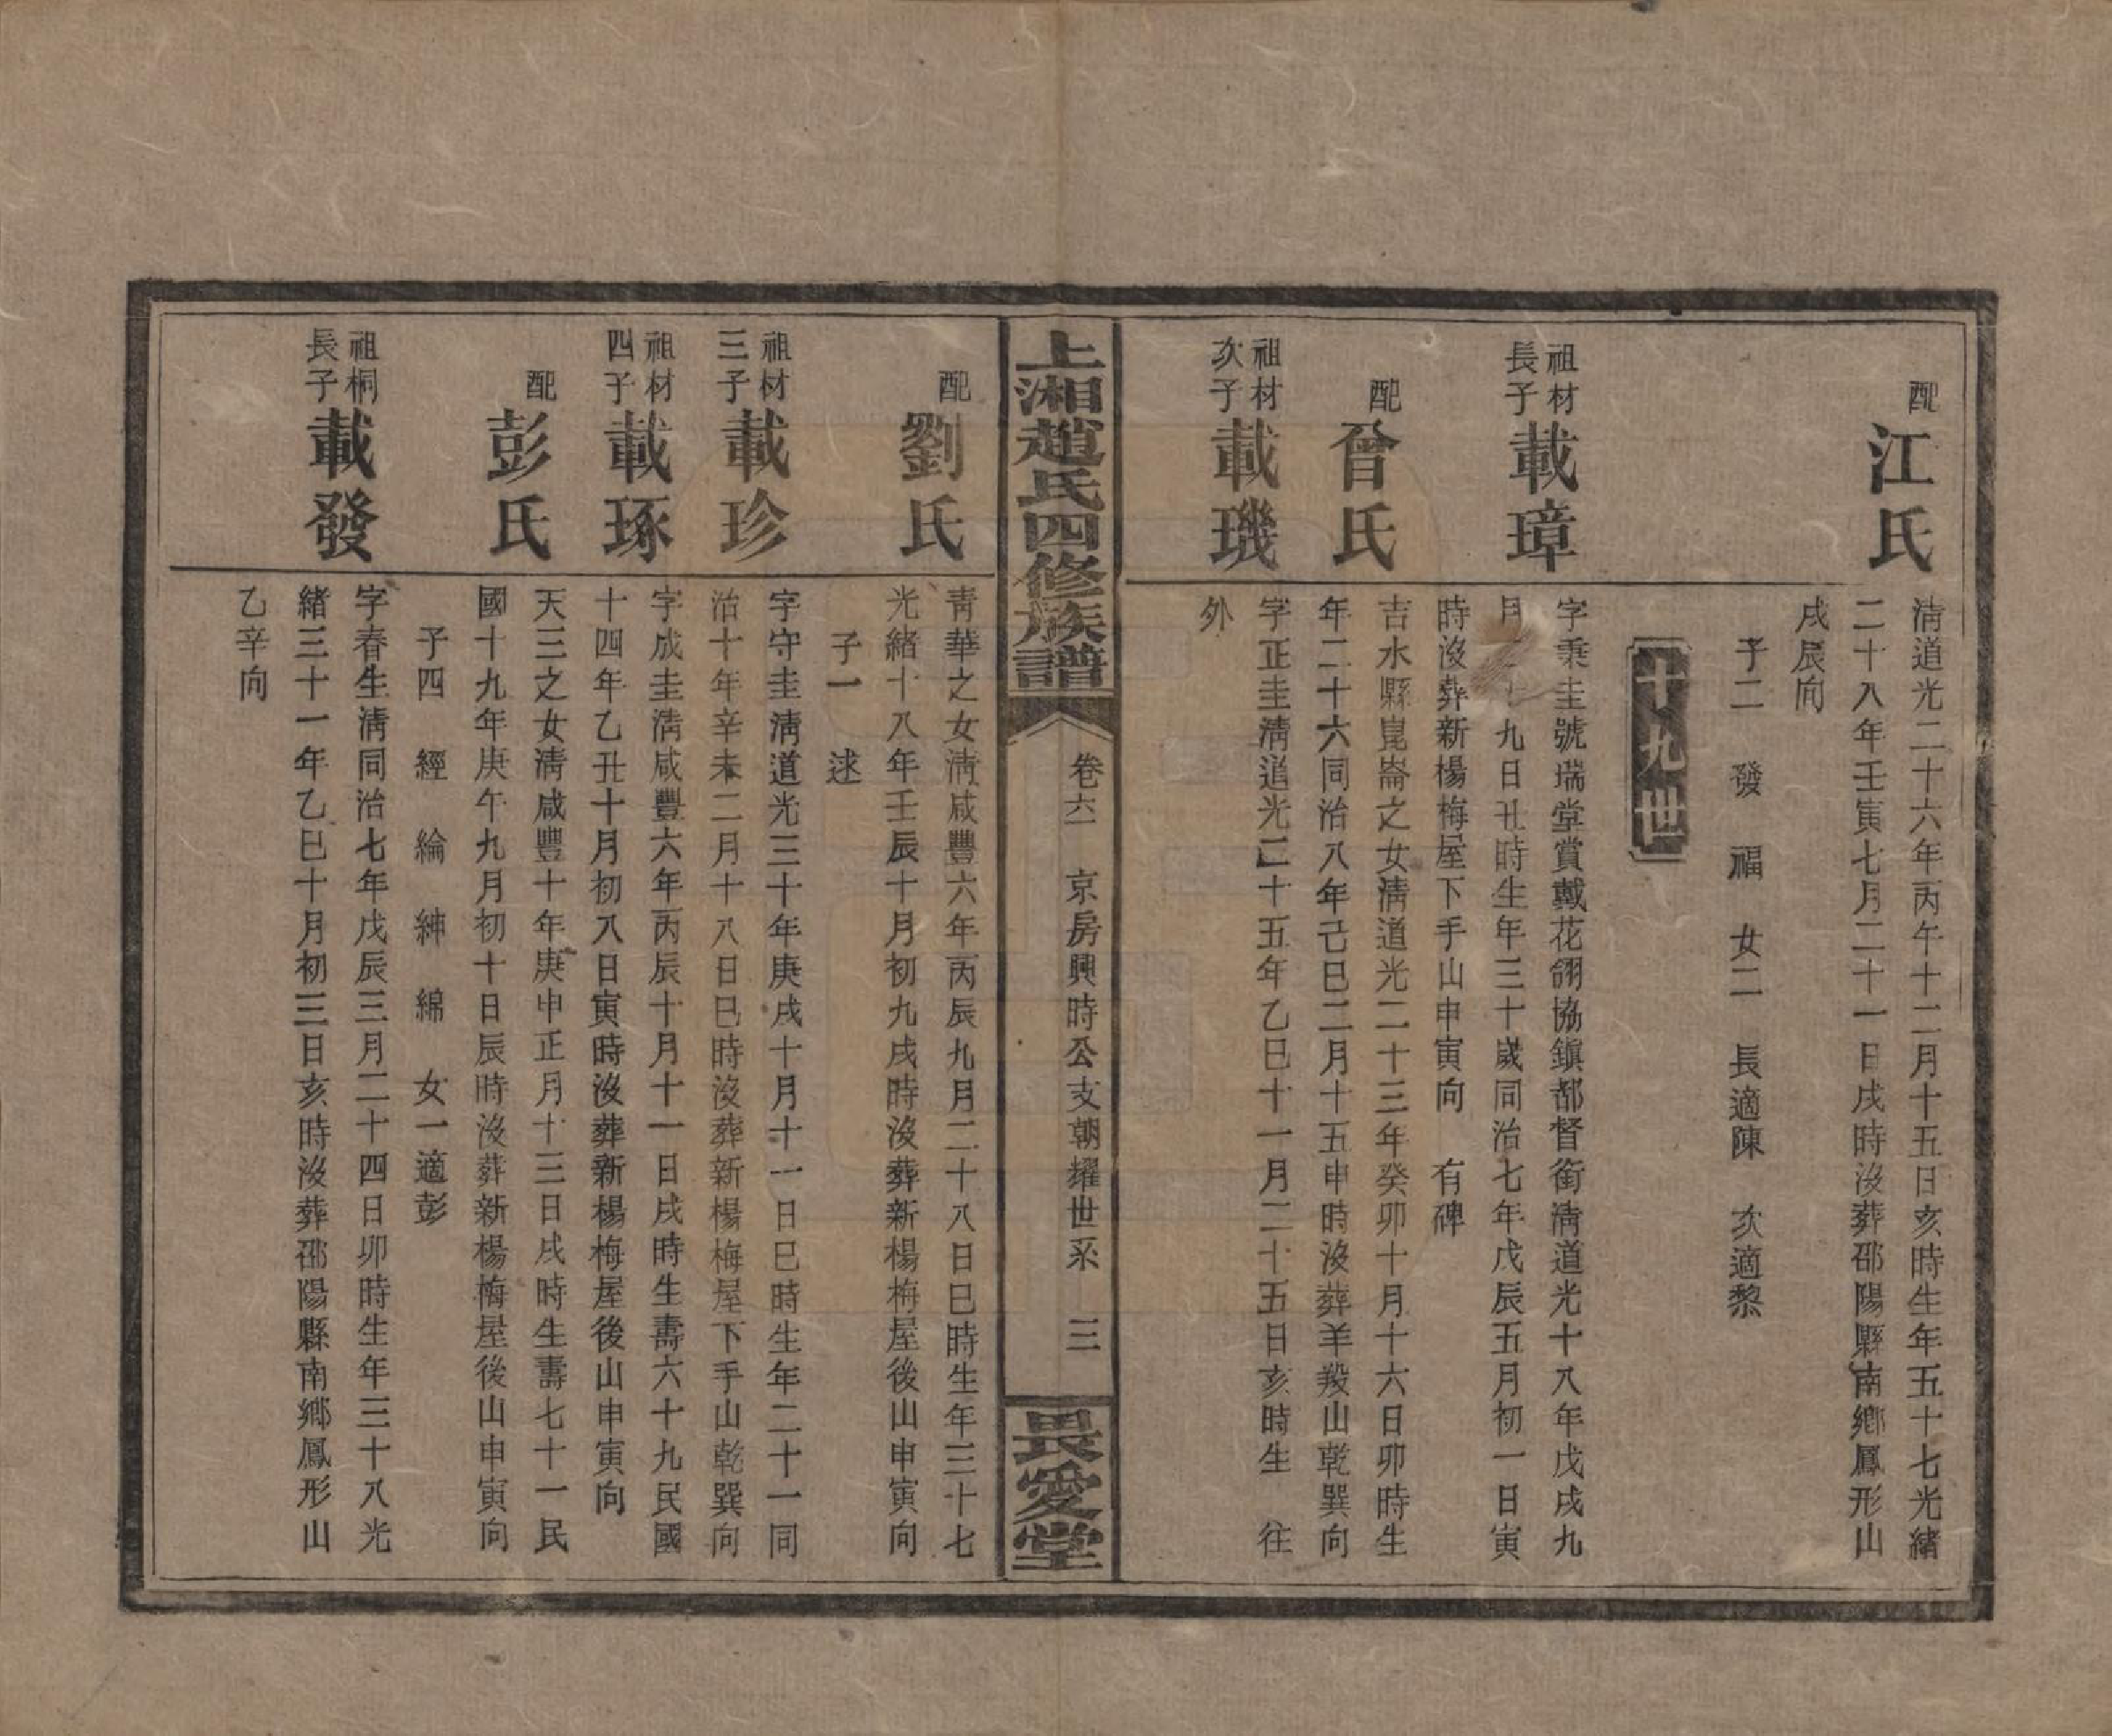 配
江氏
清道光二十六年丙午十二月十五日亥時生年五十七光緒
二十八年壬寅七月二十一日戌時沒葬邵陽縣南鄉鳳形山
戌辰向
子二 發 福 女二 長適陳 次適黎
十九世
祖材
長子
載璋
字秉圭號瑞堂賞戴花翎協鎮都督銜清道光十八年戊戌九
月 九日丑時生年三十歲同治七年戊辰五月初一日寅
時沒葬新楊梅屋下手山申寅向 有碑
配
曾氏
吉水縣崑崙之女清道光二十三年癸卯十月十六日卯時生
年二十六同治八年己巳二月十五申時沒葬羊羖山乾巽向
祖材
次子
載璣
字正圭清道光二十五年乙巳十一月二十五日亥時生 往
外
上湘趙氏四修族譜
卷六 京房興時公支朝耀世系 三
畏愛堂
配
劉氏
青華之女清咸豐六年丙辰九月二十八日巳時生年三十七
光緒十八年壬辰十月初九戌時沒葬新楊梅屋後山申寅向
子一 逑
祖材
三子
載珍
字守圭清道光三十年庚戌十月十一日巳時生年二十一同
治十年辛未二月十八日巳時沒葬新楊梅屋下手山乾巽向
祖材
四子
載琢
字成圭清咸豐六年丙辰十月十一日戌時生壽六十九民國
十四年乙丑十月初八日寅時沒葬新楊梅屋後山申寅向
配
彭氏
天三之女清咸豐十年庚申正月十三日戌時生壽七十一民
國十九年庚午九月初十日辰時沒葬新楊梅屋後山申寅向
子四 經 綸 紳 綿 女一適彭
祖桐
長子
載發
字春生清同治七年戊辰三月二十四日卯時生年三十八光
緒三十一年乙巳十月初三日亥時沒葬邵陽縣南鄉鳳形山
乙辛向